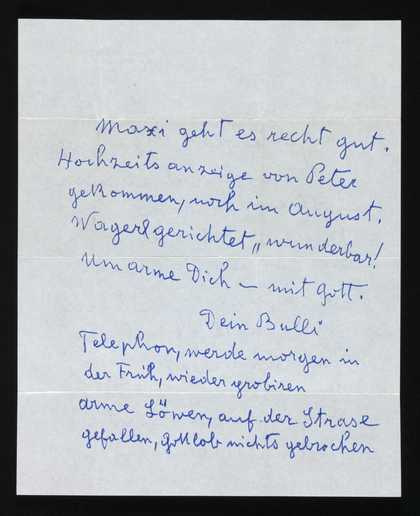 Maxi geht es recht gut.
Hochzeitsanzeige von Peter
gekommen, noch im August.
Wagerl gerichtet „wunderbar!
Umarme Dich – mit Gott.
Dein Bulli
Telephon, werde morgen in
der Früh, wieder probiren
arme Löwen, auf der Strase
gefallen, Gottlob nichts gebrochen